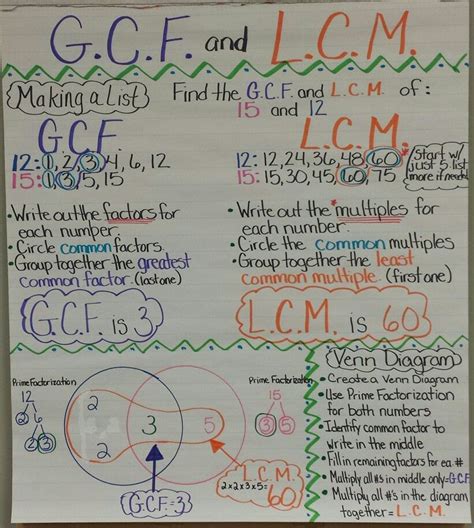 G.C.F. and L.C.M.
Making a List
Find the G.C.F. and L.C.M. of:
15 and 12
G.C.F.
12: 1, 2, 3, 4, 6, 12
15: 1, 3, 5, 15
• Write out the factors for
each number.
• Circle common factors.
• Group together the greatest
common factor. (last one)
G.C.F. is 3
L.C.M.
12: 12, 24, 36, 48, 60
15: 15, 30, 45, 60, 75
*Start w/
just 5. list
more if needed
• Write out the *multiples for
each number.
• Circle the common multiples
• Group together the least
common multiple. (first one)
L.C.M. is 60
Prime Factorization
12
2 6
2 3
2
2
3
5
Prime Factorization
15
3 5
G.C.F.=3
L.C.M.
2x2x3x5=60
Venn Diagram
• Create a Venn Diagram
• Use Prime Factorization
for both numbers
• Identify common factor to
write in the middle
• Fill in remaining factors for ea. #
• Multiply all #s in middle only=GCF
• Multiply all #'s in the diagram
together = L.C.M.